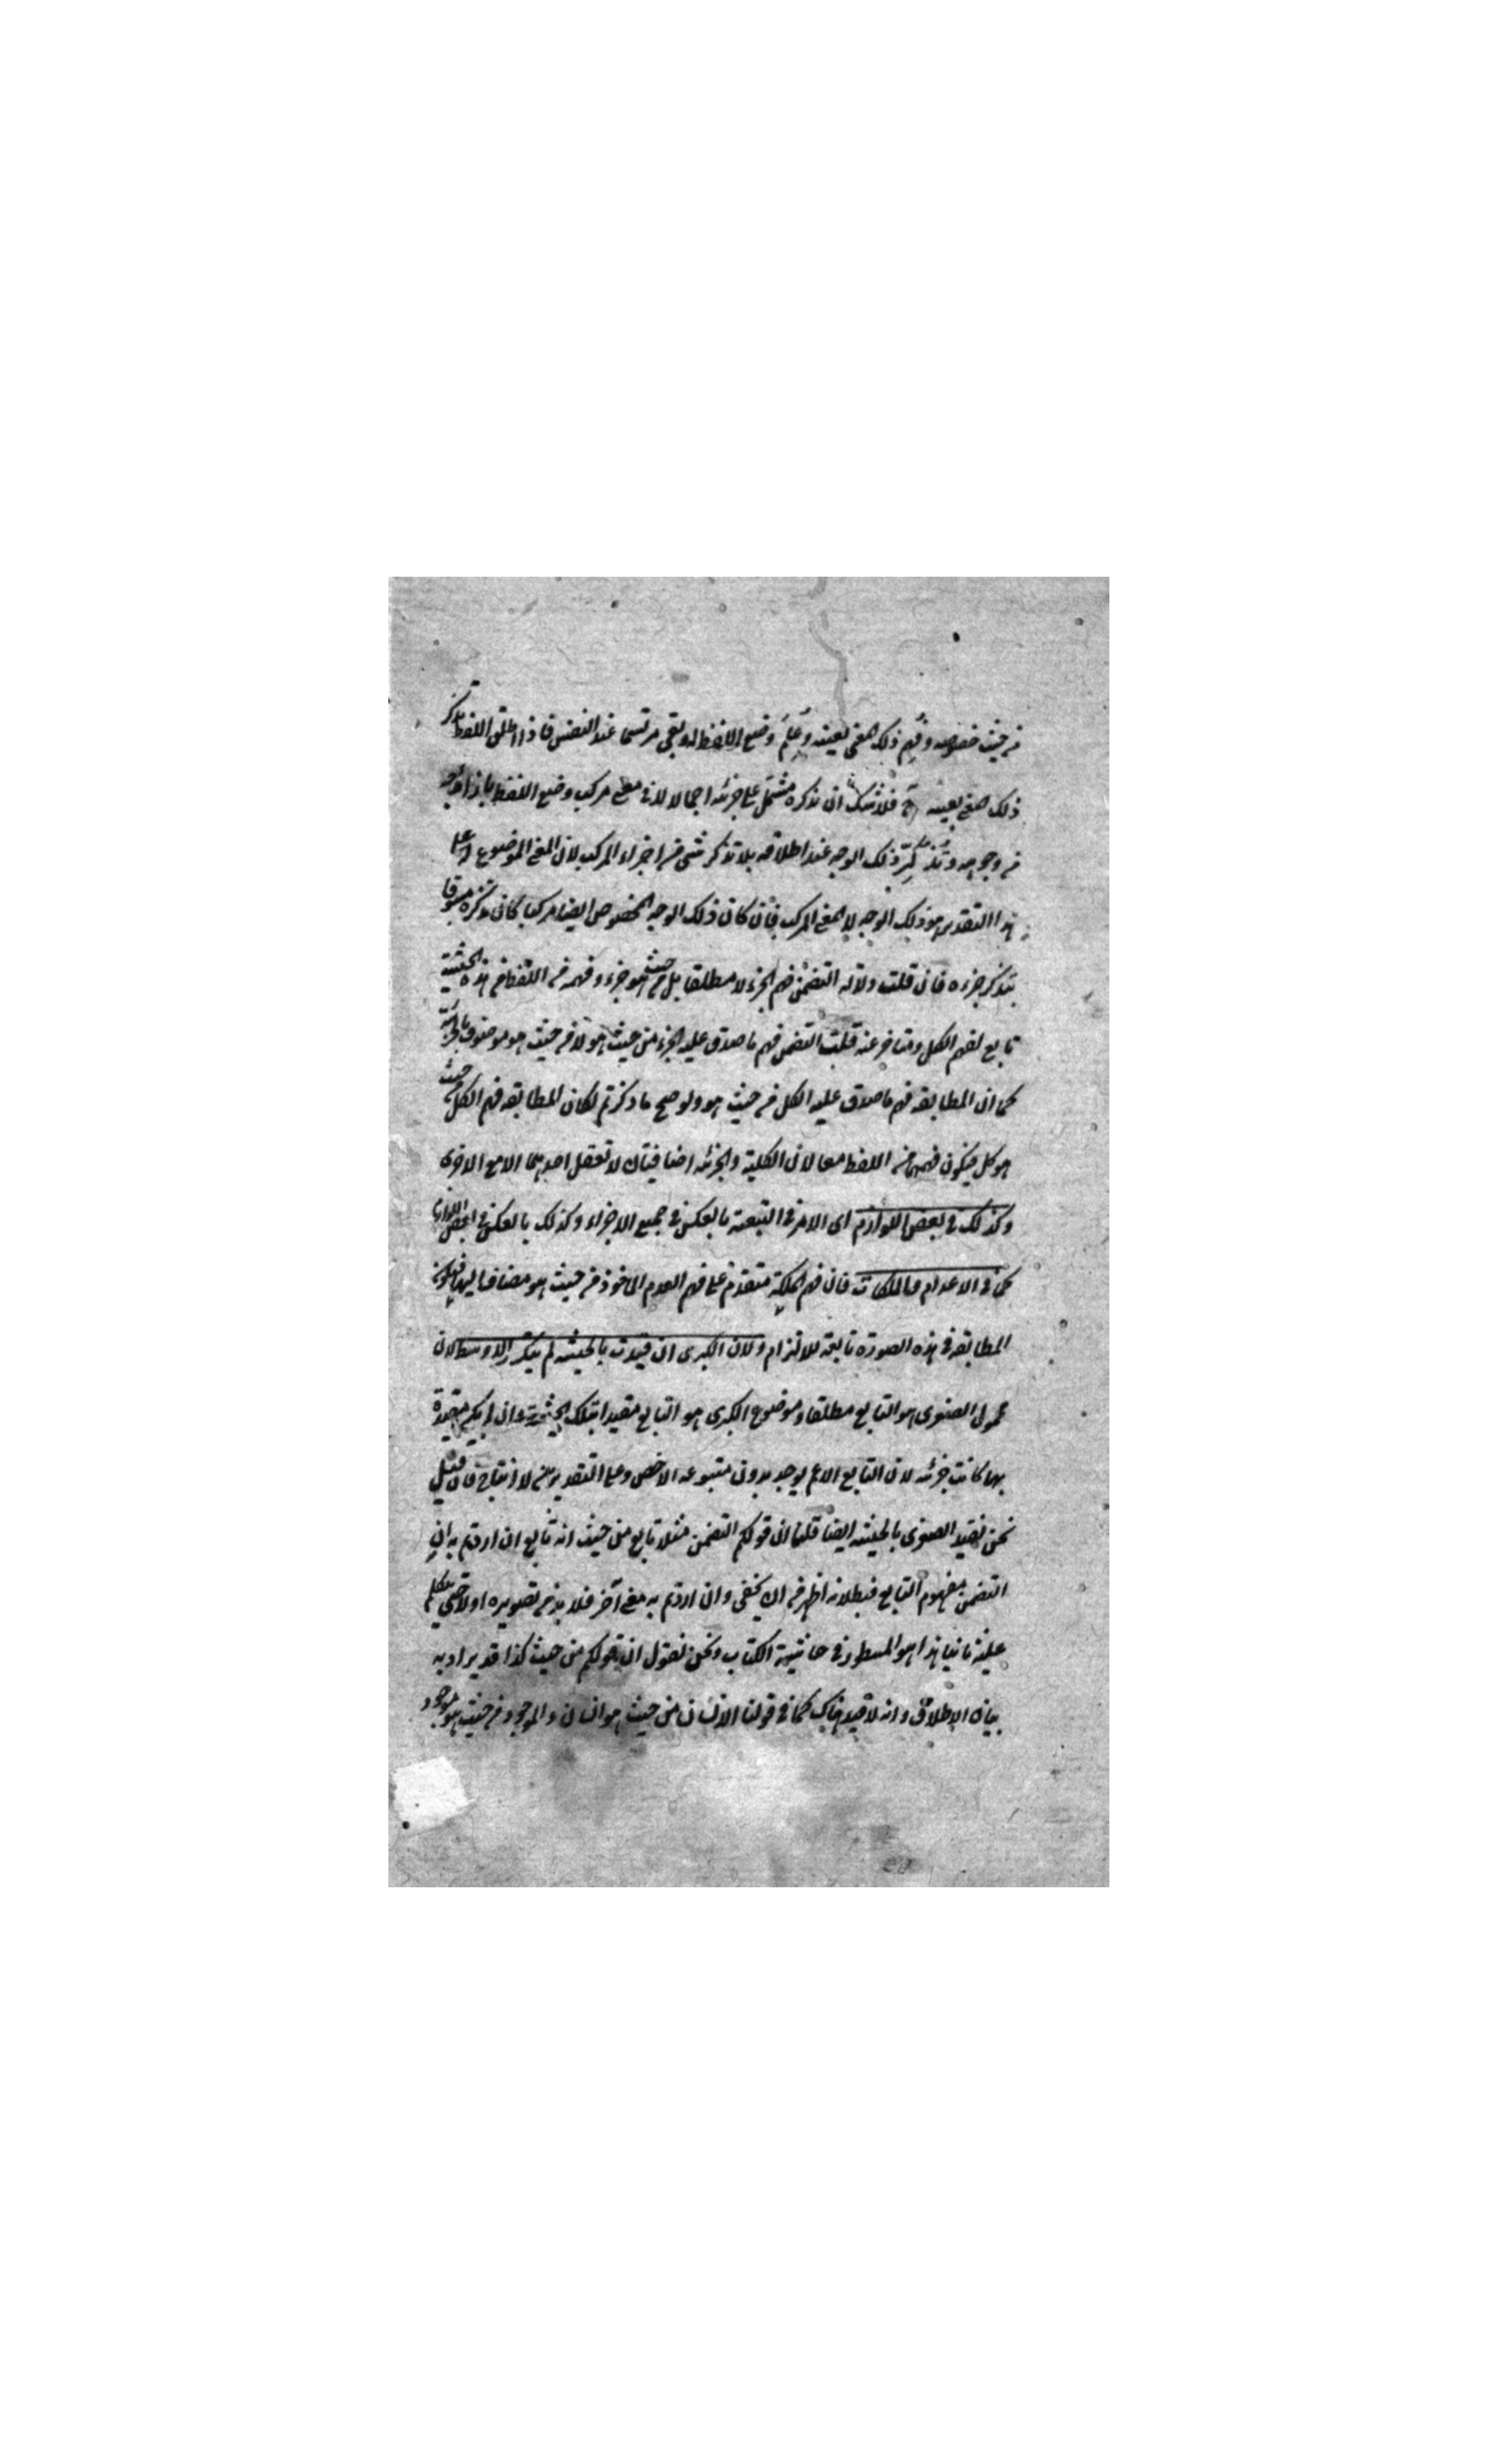 من حيث خصوصه وفُهِم ذلك المعنى بعينه وعُلِمَ وضع اللفظ له وبقى مرتسما عند النفس فاذا اطلق اللفظ تذكر
ذلك المعنى بعينه فلا شك ان تذكره مشتمل على جزئه اجمالا لا فى معنى مركب وضع اللفظ بازاء وجه
من وجوهه وتذكر ذلك الوجه عند اطلاقه بلا تذكر شئ من اجزاء المركب لان المعنى الموضوع له على
هذا التقدير هو ذلك الوجه لا المعنى المركب فان كان ذلك الوجه المخصوص ايضا مركبا كان تذكره مسبوقا
بتذكر جزءه فان قلت دلالة التضمن فهم الجزء لا مطلقا بل من حيث هو جزء وفهمه من اللفظ من هذه الحيثية
تابع لفهم الكل ومتاخر عنه قلت التضمن فهم ما صدق عليه الجزء من حيث هو لا من حيث هو موصوف بالجزئية
كما ان المطابقه فهم ما صدق عليه الكل من حيث هو ولو صح ما ذكرتم لكان المطابقه فهم الكل من حيث
هو كل فيكون فهمهما من اللفظ معا لان الكلية والجزئيه اضافيتان لا تعقل احديهما الا مع الاخرى
وكذلك فى بعض اللوازم اى الامر فى التبعية بالعكس فى جميع الاجزاء وكذلك بالعكس فى بعض اللوازم
كما فى الاعدام والملكات فان فهم الملكة متقدم على فهم العدم الماخوذ من حيث هو مضاف اليها فيكون
المطابقه فى هذه الصورة تابعة للالتزام ولان الكبرى ان قيدت بالحيثيه لم يتكرر الاوسط لان
محمول الصغرى هو التابع مطلقا وموضوع الكبرى هو التابع مقيدا بتلك الحيثية وان لم يكن مقيدة
بها كانت جزئيه لان التابع الاعم يوجد بدون متبوعه الاخص وعلى التقديرين لا انتاج فان قيل
نحن نقيد الصغرى بالحيثيه ايضا قلنا ان قولكم التضمن مثلا تابع من حيث انه تابع ان اردتم به ان
التضمن مفهوم التابع فبطلانه اظهر من ان يخفى وان اردتم به معنى آخر فلا بد من تصويره اولا حتى يتكلم
عليه ثانيا هذا هو المسطور فى حاشية الكتاب ونحن نقول ان قولكم من حيث كذا قد يراد به
بيان الاطلاق وانه لا قيد هناك كما فى قولنا الانسان من حيث هو انسان والموجود من حيث هو موجود